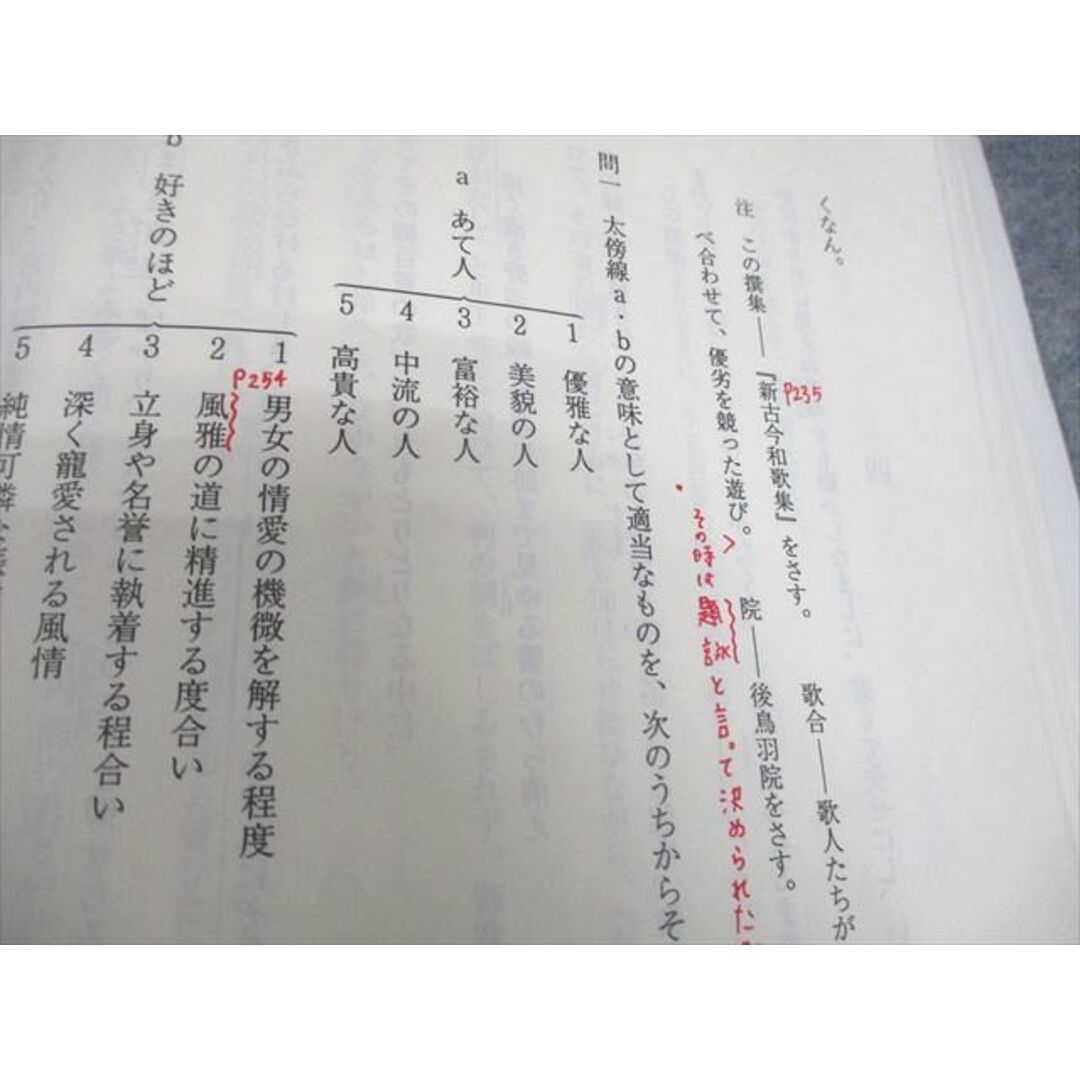 くなん。
注　この撰集――『新古今和歌集』をさす。　歌合――歌人たちが
P235
べ合わせて、優劣を競った遊び。　院――後鳥羽院をさす。
その時は題詠と言って決められた
問一　太傍線a・bの意味として適当なものを、次のうちからそ
a　あて人
1　優雅な人
2　美貌の人
3　富裕な人
4　中流の人
5　高貴な人
b　好きのほど
1　男女の情愛の機微を解する程度
P254
2　風雅の道に精進する度合い
3　立身や名誉に執着する程合い
4　深く寵愛される風情
5　純情可憐な